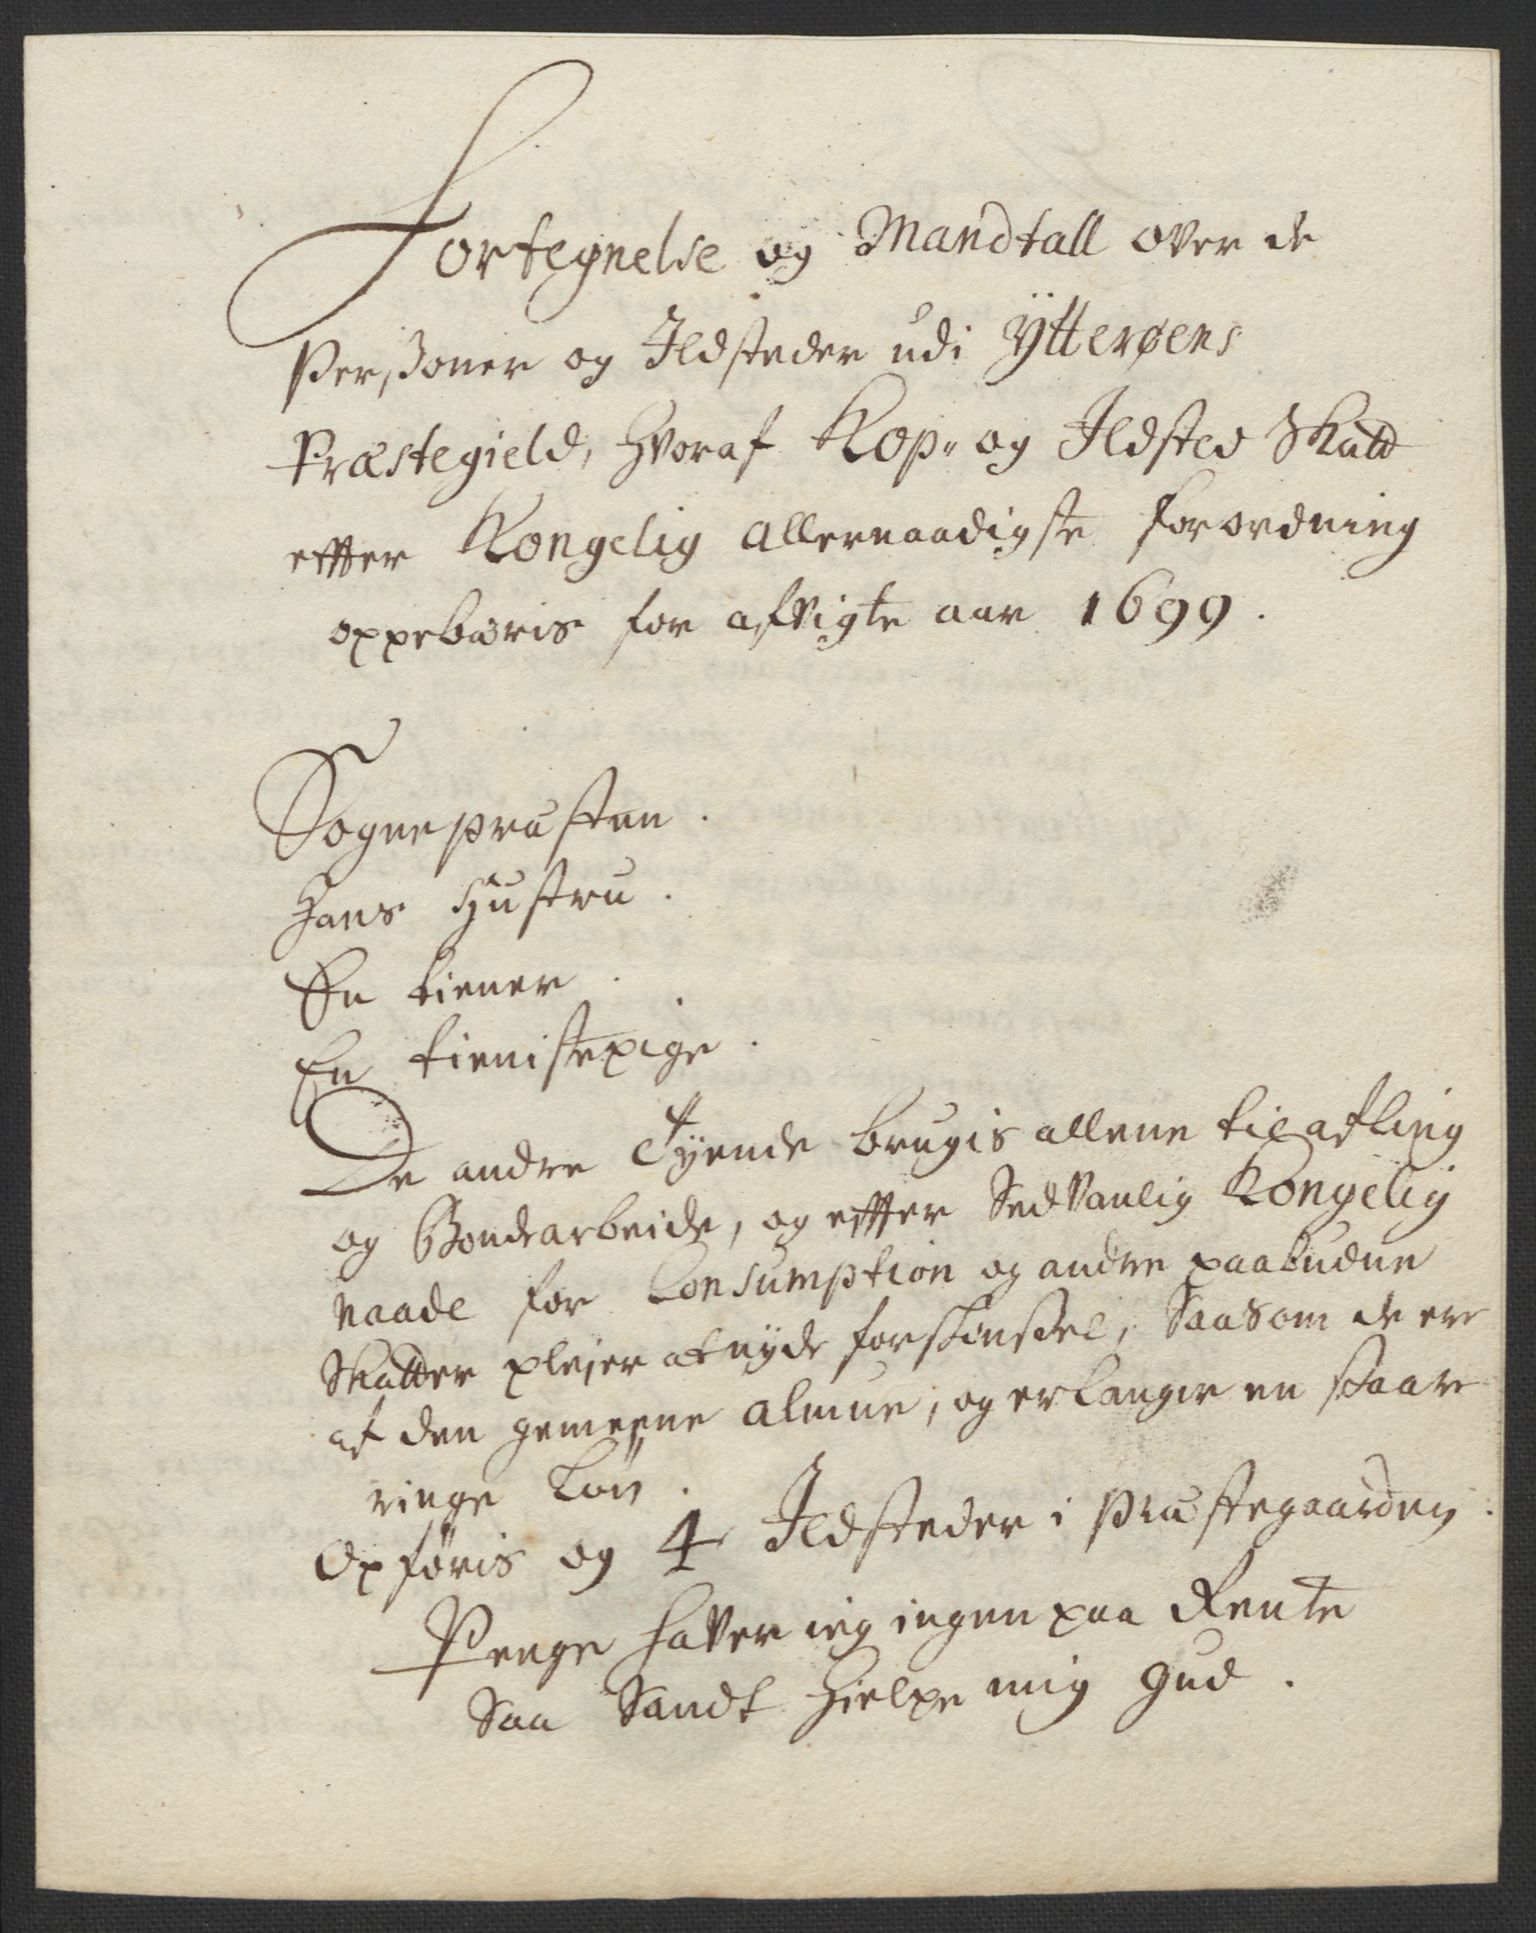 Fortegnelse og Mandtall over de
Perßoner og Ildsteder udi Ÿtterøens
Præstegield, hvoraf Kop- og Ildsted Skatt
effter Kongelig allernaadigste forordning
oppebæris for afvigte aar 1699.
Sognepræsten.
Hans Hustru.
En tiener.
En tienistepige.
De andre Tyende brugis allene til afling
og Bondearbeide, og effter Sedvanlig Kongelig
naade for Consumption og andre paabudne
Skatter plejer at nyde forskonßel, Saasom de ere
af den gemeene almue, og erlanger en skaare
ringe Løn.
Opføris og 4 Ildsteder i Præstegaarden.
Penge haver ieg ingen paa Rente
Saa Sandt hielpe mig Gud.